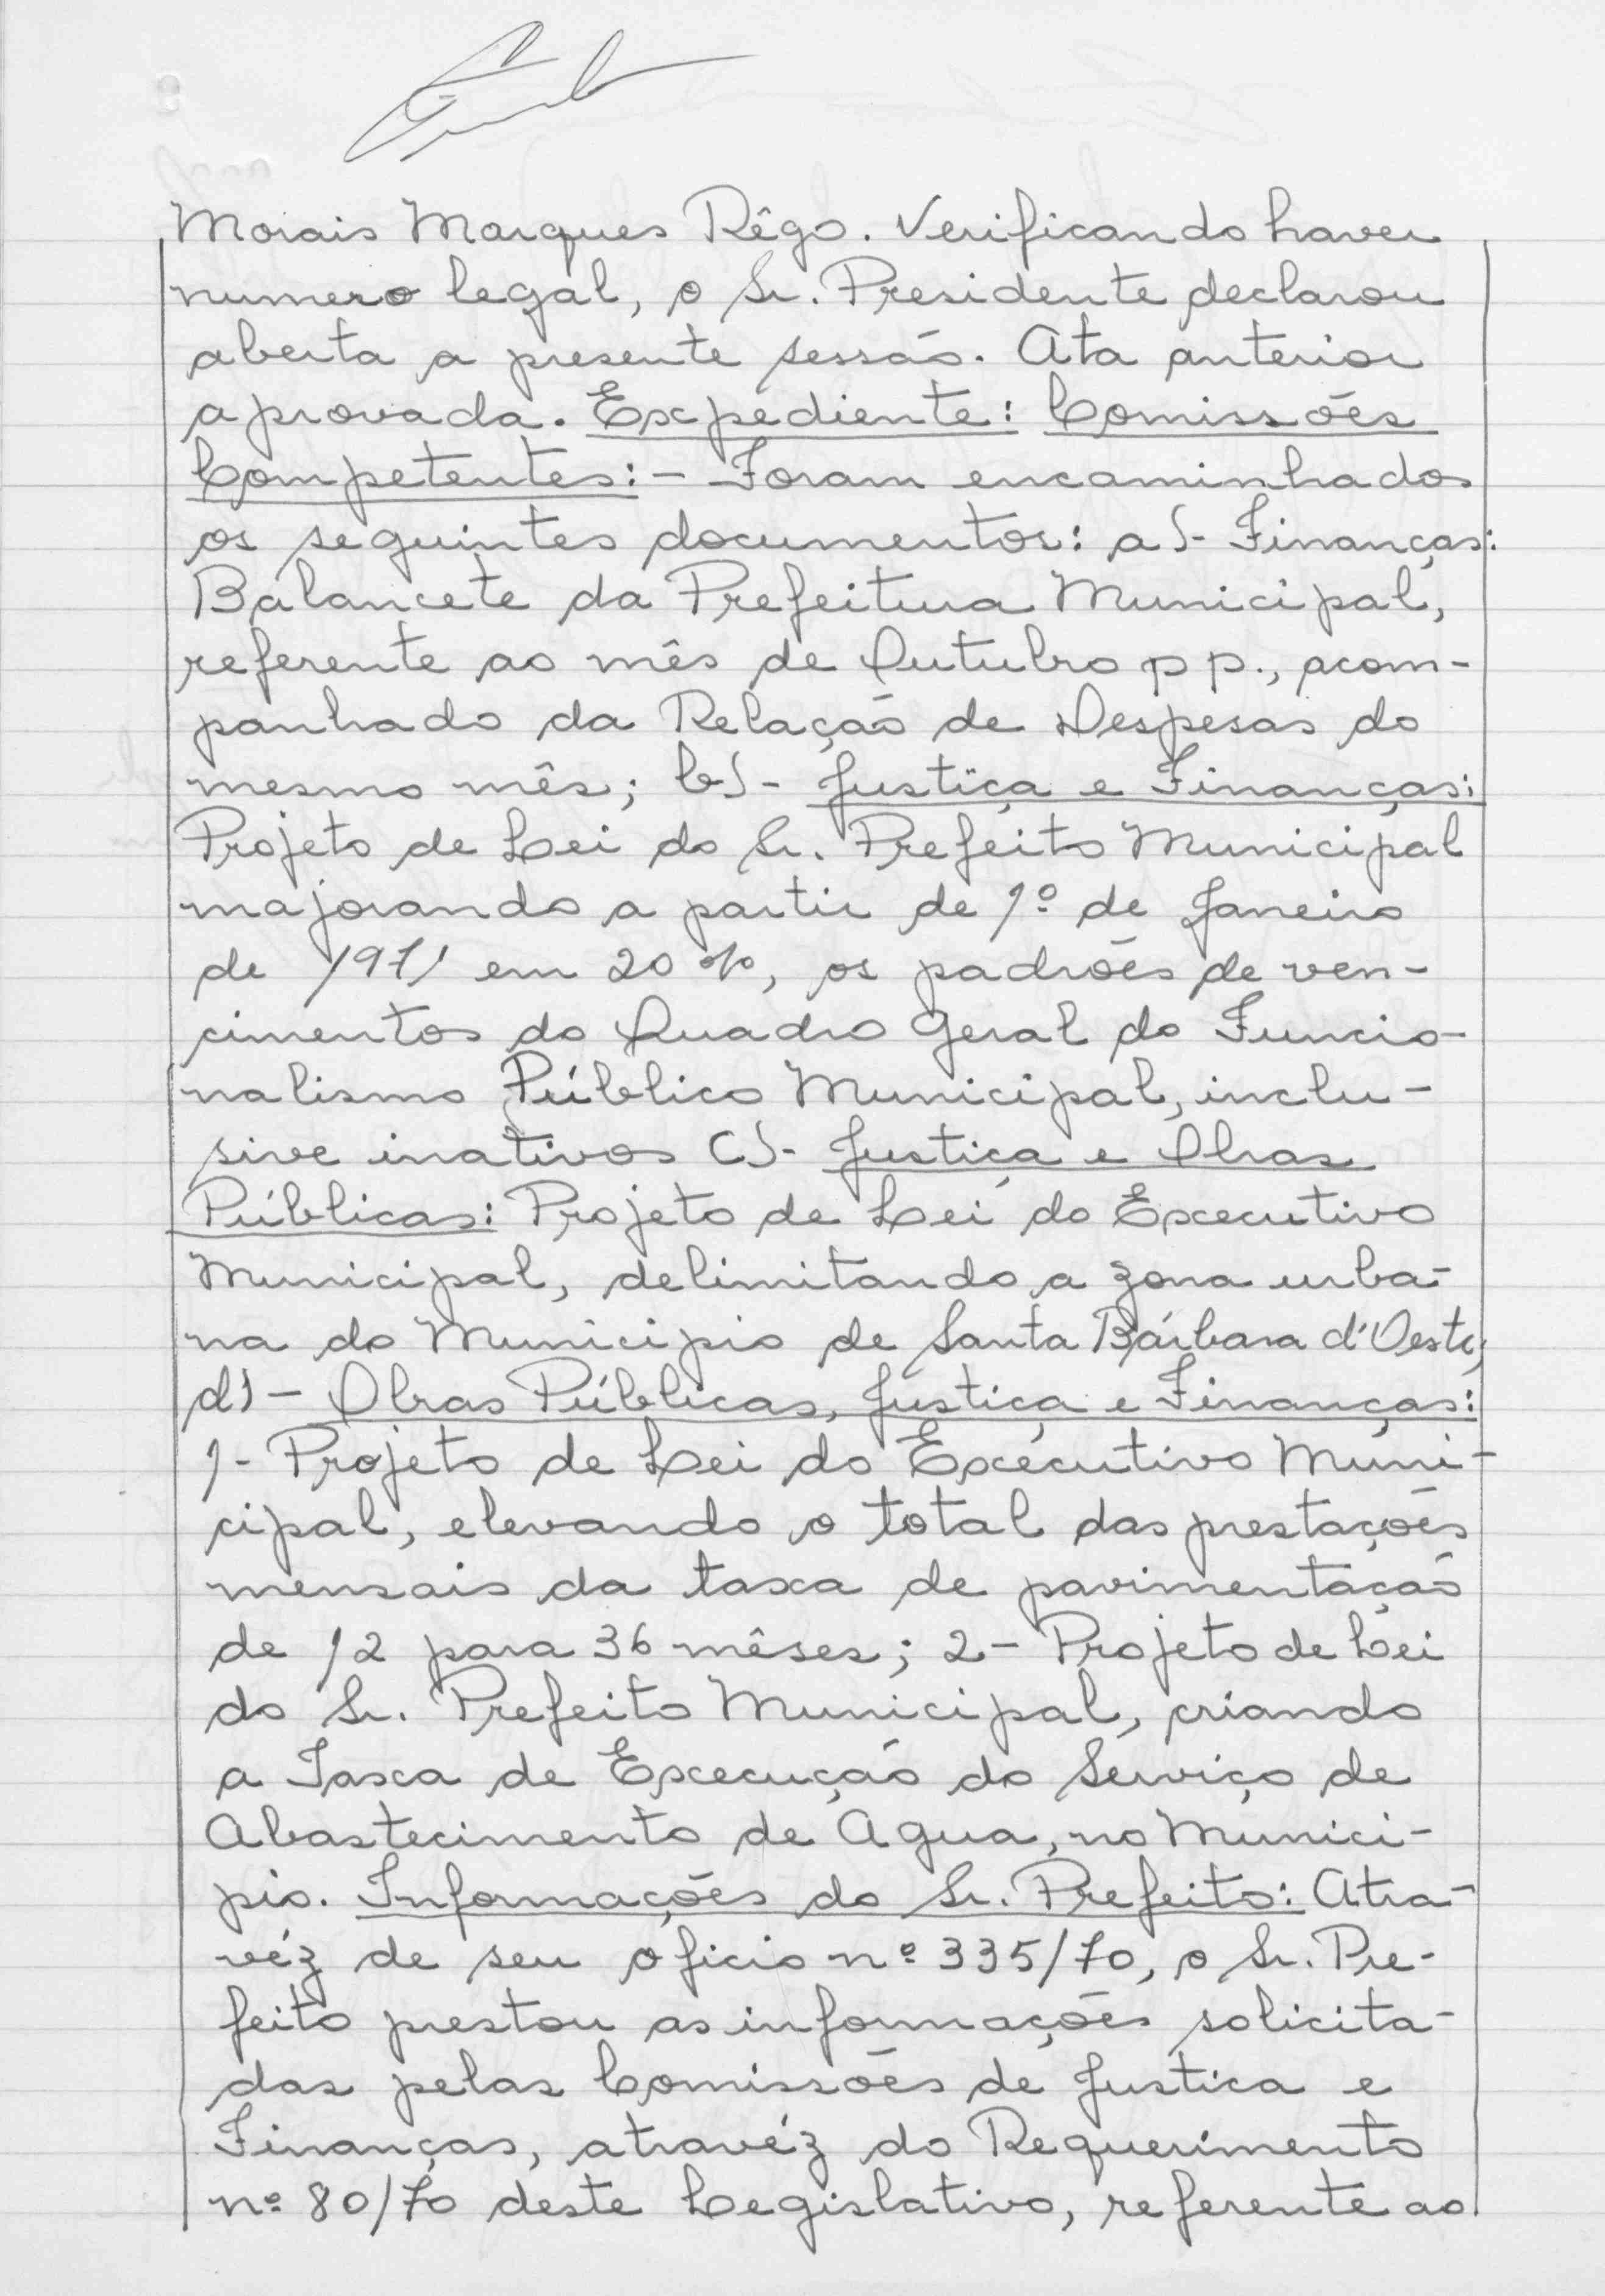 Morais Marques Rêgo. Verificando haver
numero legal, o Sr. Presidente declarou
aberta a presente sessão. Ata anterior
aprovada. Expediente: Comissões
Competentes:- Foram encaminhados
os seguintes documentos: a)- Finanças:
Balancete da Prefeitura Municipal,
referente ao mês de Outubro p p., acom-
panhado da Relação de Despesas do
mesmo mês; b)- Justiça e Finanças:
Projeto de Lei do Sr. Prefeito Municipal
majorando a partir de 1º de Janeiro
de 1971 em 20%, os padrões de ven-
cimentos do Quadro Geral do Funcio-
nalismo Público Municipal, inclu-
sive inativos C)- Justiça e Obras
Públicas: Projeto de Lei do Executivo
Municipal, delimitando a zona urba-
na do Municipio de Santa Bárbara d'Oeste;
d)- Obras Públicas, Justiça e Finanças:
1- Projeto de Lei do Executivo Muni-
cipal, elevando o total das prestações
mensais da taxa de pavimentação
de 12 para 36 mêses; 2- Projeto de Lei
do Sr. Prefeito Municipal, criando
a Taxa de Execução do Serviço de
Abastecimento de Agua, no Munici-
pio. Informações do Sr. Prefeito: Atra-
véz de seu oficio nº 335/70, o Sr. Pre-
feito prestou as informações solicita-
das pelas Comissões de Justica e
Finanças, atravéz do Requerimento
nº 80/70 deste Legislativo, referente ao